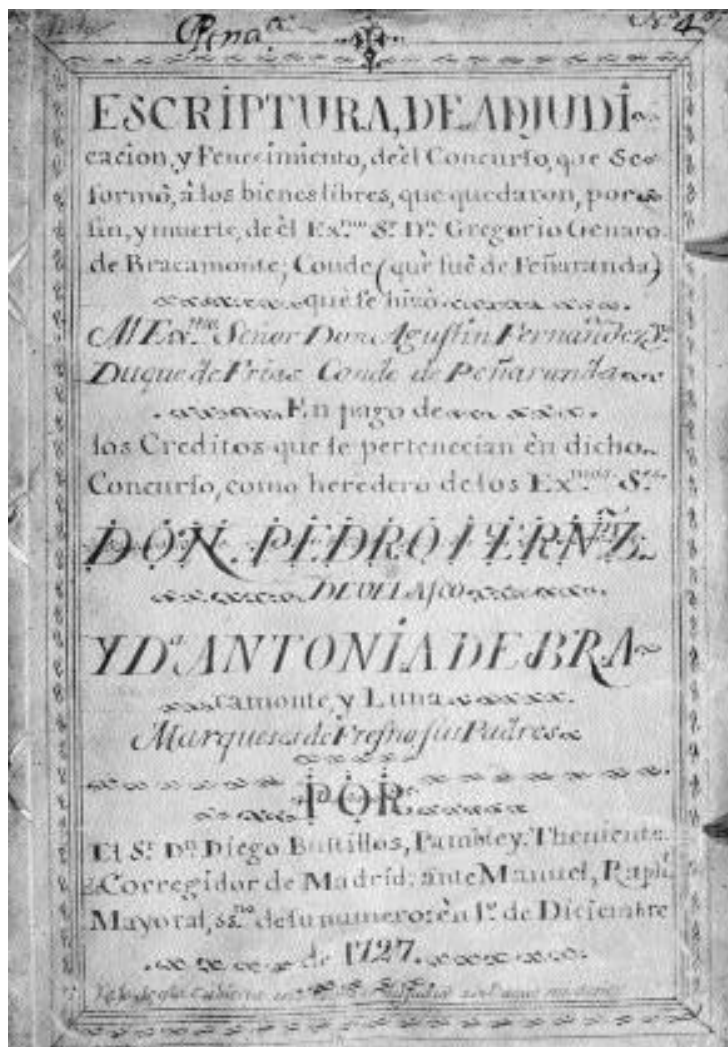 Pena.ᵃ
Nº 4º
ESCRIPTURA, DE ADJUDI-
cacion, y Fenecimiento, de èl Concurso, que Se
formò, â los bienes libres, que quedaron, por
fin, y muerte, de èl Ex.ᵐᵒ Sʳ. Dⁿ. Gregorio Genaro
de Bracamonte; Conde (què fuê de Peñaranda)
que se hizo
Al Ex.ᵐᵒ Señor Don Agustin Fernandez, Vº
Duque de Frias Conde de Peñaranda
En pago de
los Creditos que le pertenecian èn dicho
Concurso, como heredero de los Ex.ᵐᵒˢ Sʳᵉˢ
DON. PEDRO FERNZ.
DE VELASCO
Y Dᵃ ANTONIA DE BRA-
camonte, y Luna
Marqueses de Fresno sus Padres
POR
El Sʳ. Dⁿ. Diego Bustillos, Pambley. Theniente
Corregidor de Madrid: ante Manuel, Raphˡ.
Mayoral, ssⁿᵒ de su numero: èn 1º. de Diciembre
de 1727.